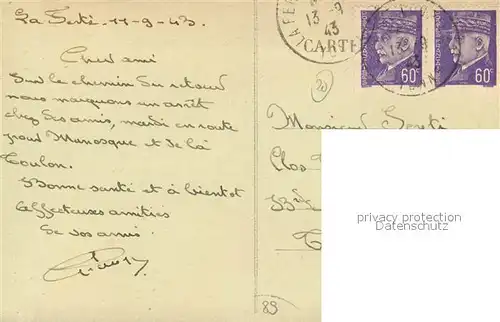 La Ferté 11-9-43.
Cher ami
Sur le chemin du retour
nous marquons un arrêt
chez des amis, mardi en route
pour Manosque et de là
Toulon.
Bonne santé et à bientôt
Affectueuses amitiés
de vos amis.
LA FE
13 -9
43
CARTE
13 -9
60c
60c
20
Monsieur
Clos
privacy protection
WATERMARK
89